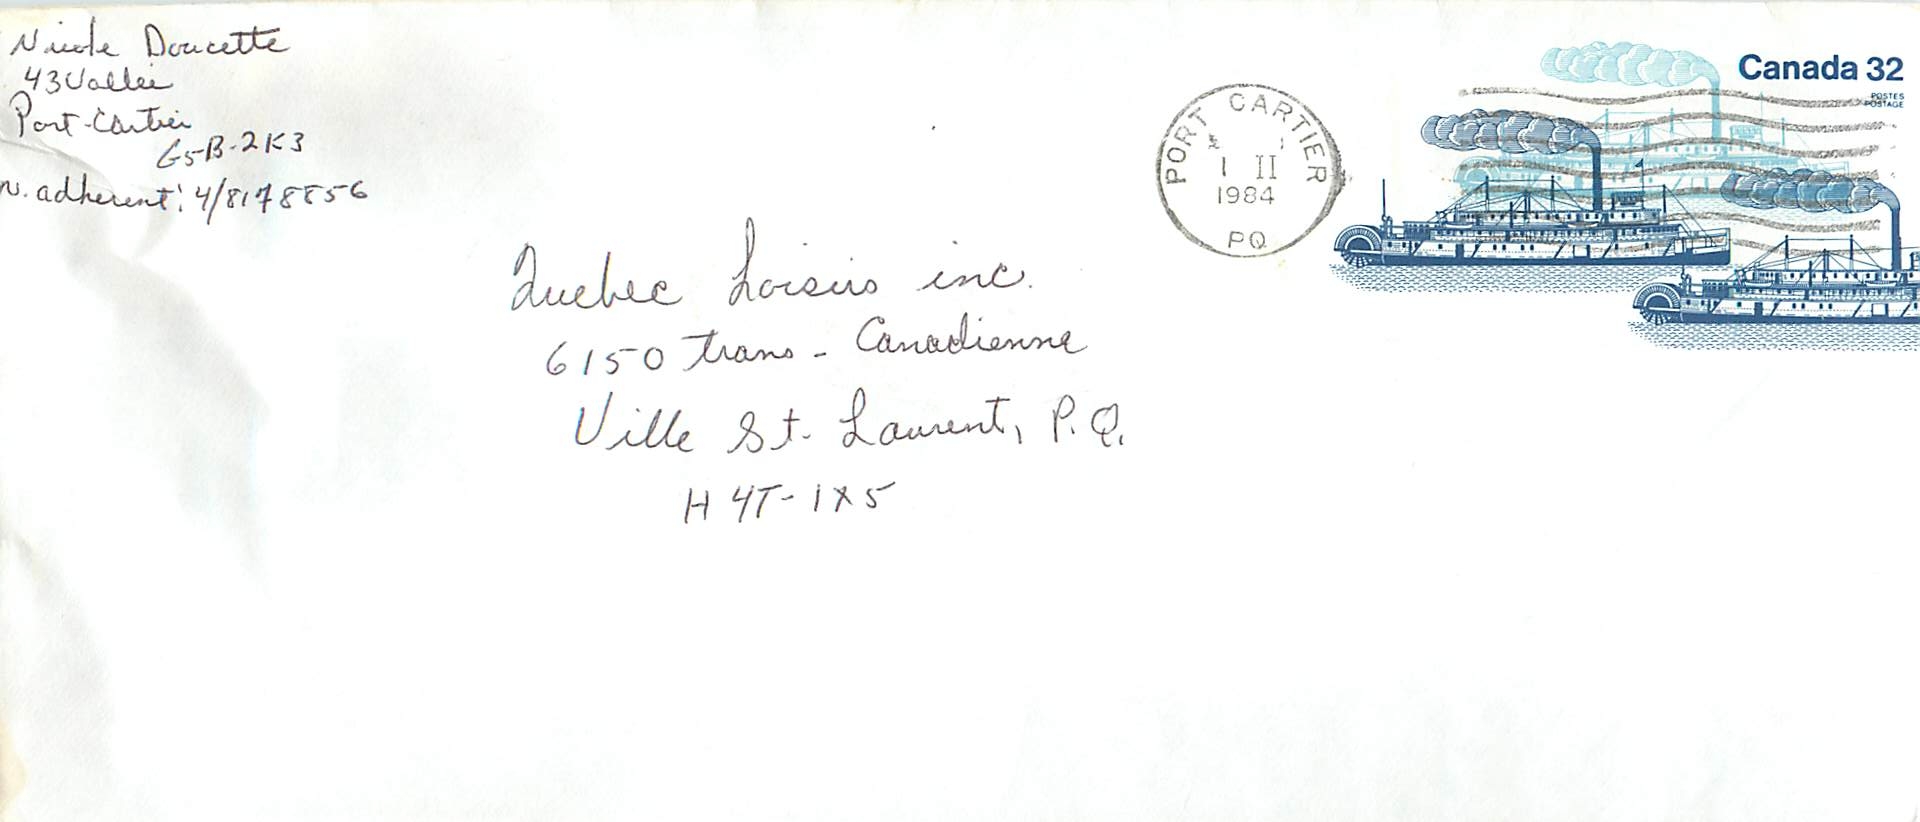 Nicole Doucette
43 Vallée
Port-Cartier
G5B-2K3
n. adherent: 4/8178856
Quebec Loisirs inc.
6150 trans-Canadienne
Ville St. Laurent, P.Q.
H4T-1X5
PORT CARTIER
1 II
1984
PQ
Canada 32
POSTES
POSTAGE